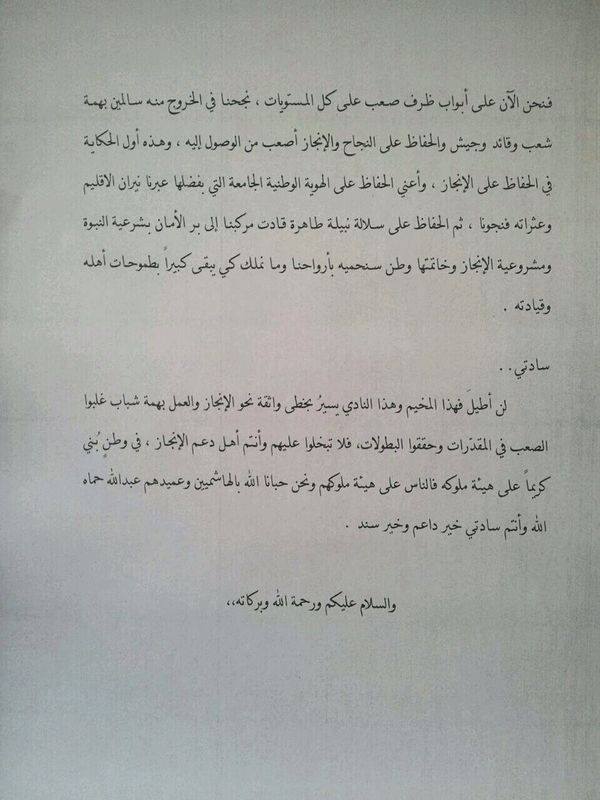 فنحن الآن على أبواب ظرف صعب على كل المستويات ، نجحنا في الخروج منه سالمين بهمة
شعب وقائد وجيش والحفاظ على النجاح والإنجاز أصعب من الوصول إليه ، وهذه أول الحكاية
في الحفاظ على الإنجاز ، وأعني الحفاظ على الهوية الوطنية الجامعة التي بفضلها عبرنا نيران الاقليم
وعثراته فنجونا ، ثم الحفاظ على سلالة نبيلة طاهرة قادت مركبنا إلى بر الأمان بشرعية النبوة
ومشروعية الإنجاز وخاتمتها وطن سنحميه بأرواحنا وما نملك كي يبقى كبيراً بطموحات أهله
وقيادته .
سادتي . .
لن أطيلَ فهذا المخيم وهذا النادي يسيرُ بخطى واثقة نحو الإنجاز والعمل بهمة شباب غلبوا
الصعب في المقدّرات وحققوا البطولات، فلا تبخلوا عليهم وأنتم أهل دعم الإنجاز ، في وطنٍ بُني
كريماً على هيئة ملوكه فالناس على هيئة ملوكهم ونحن حبانا الله بالهاشميين وعميدهم عبدالله حماه
الله وأنتم سادتي خير داعم وخير سند .
والسلام عليكم ورحمة الله وبركاته،،